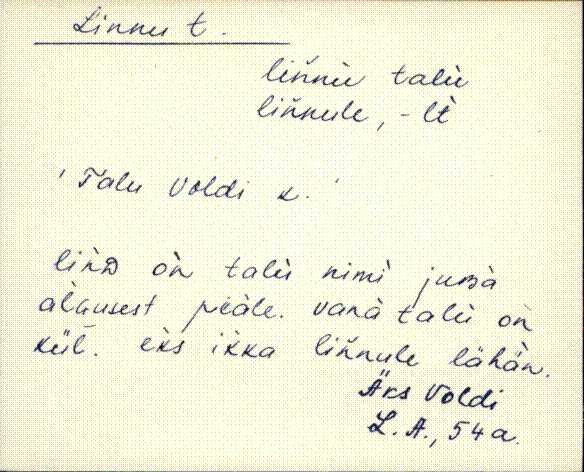 Linnu t.
liǹnù talù
liǹnule, -lt
'Talu Voldi k.'
liǹᴅ òn talù nimì jubà
àlgusest pẹ̀àle. vanà talù òn
kül. eks ikka liǹnule lähän.
Äks Voldi
L. A., 54 a.